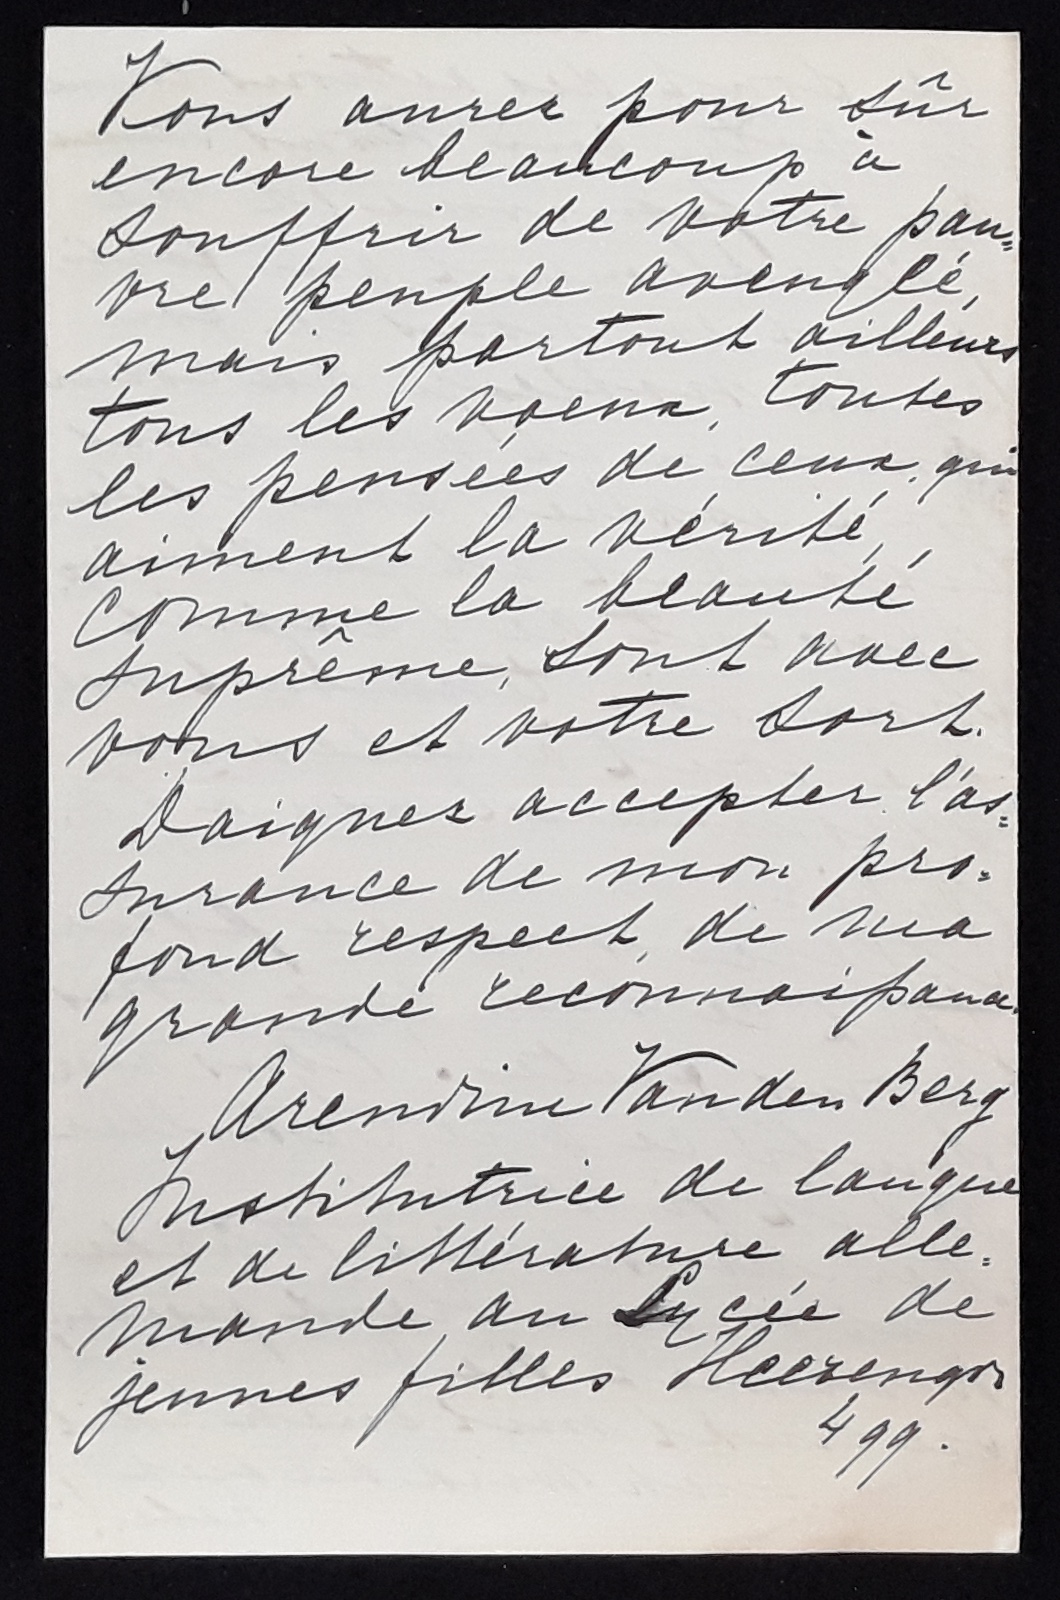 Vous aurez pour sûr
encore beaucoup à
souffrir de votre pau=
vre peuple aveuglé,
mais partout ailleurs
tous les voeux, toutes
les pensées de ceux, qui
aiment la vérité,
comme la beauté
suprême, sont avec
vous et votre sort.
Daignez accepter l'as=
surance de mon pro=
fond respect, de ma
grande reconnaissance.
Arendine Vanden Berg
Institutrice de langue
et de littérature alle=
mande au Lycée de
jeunes filles Heerengr
499.